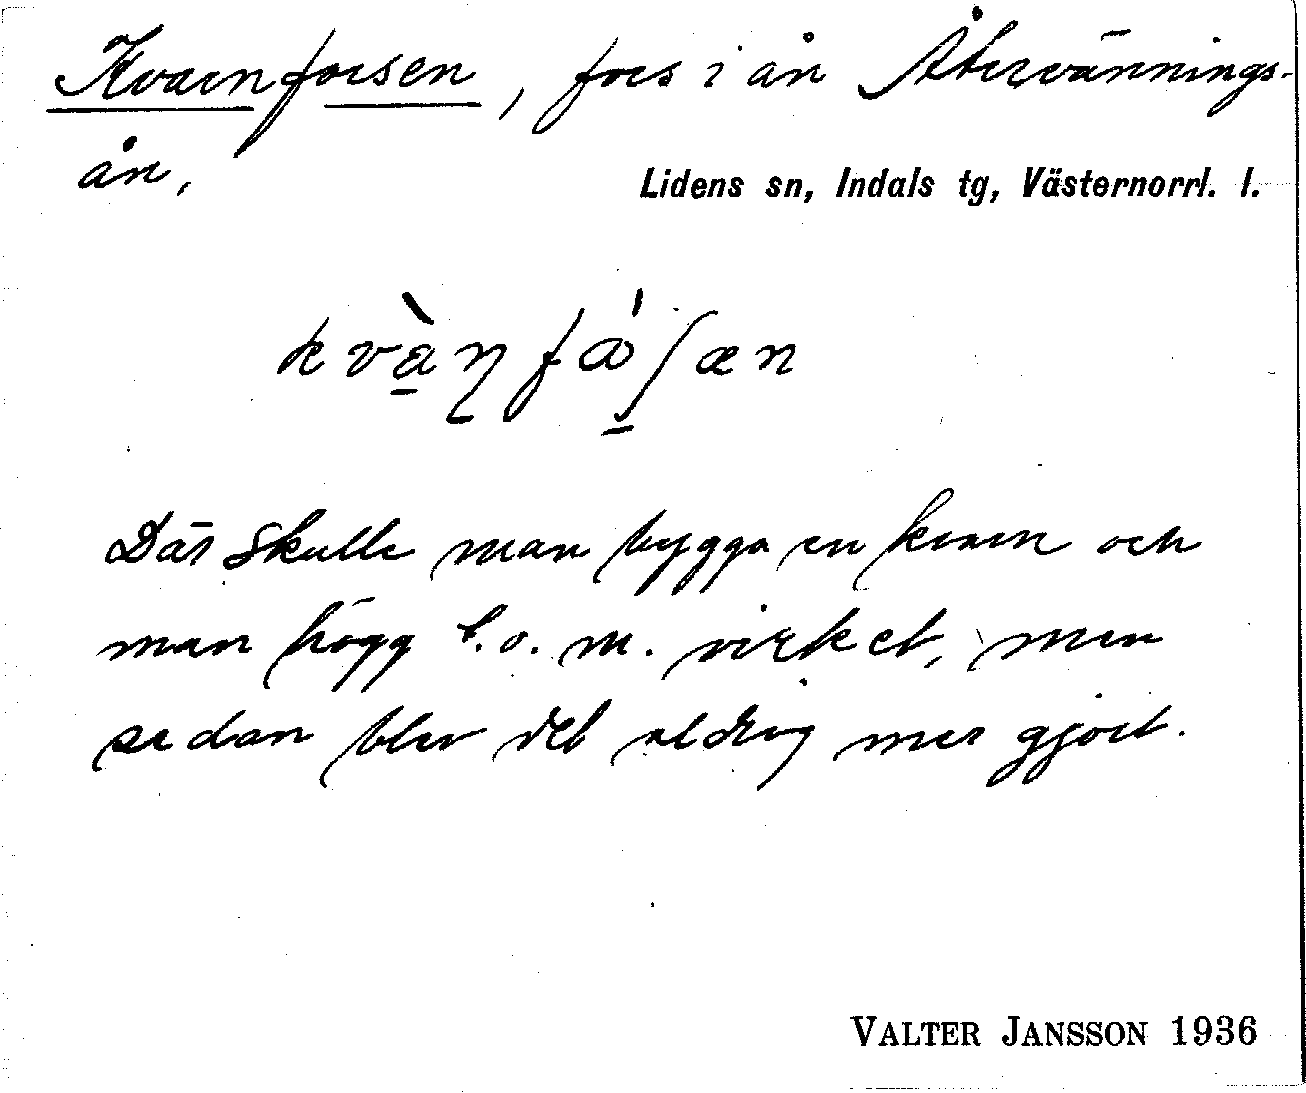 Kvarnforsen, fors i ån Återvännings-
ån,
Lidens sn, Indals tg, Västernorrl. l.
Där skulle man bygga en kvarn och
man högg t.o.m. virket, men
sedan blev det aldrig mer gjort.
VALTER JANSSON 1936